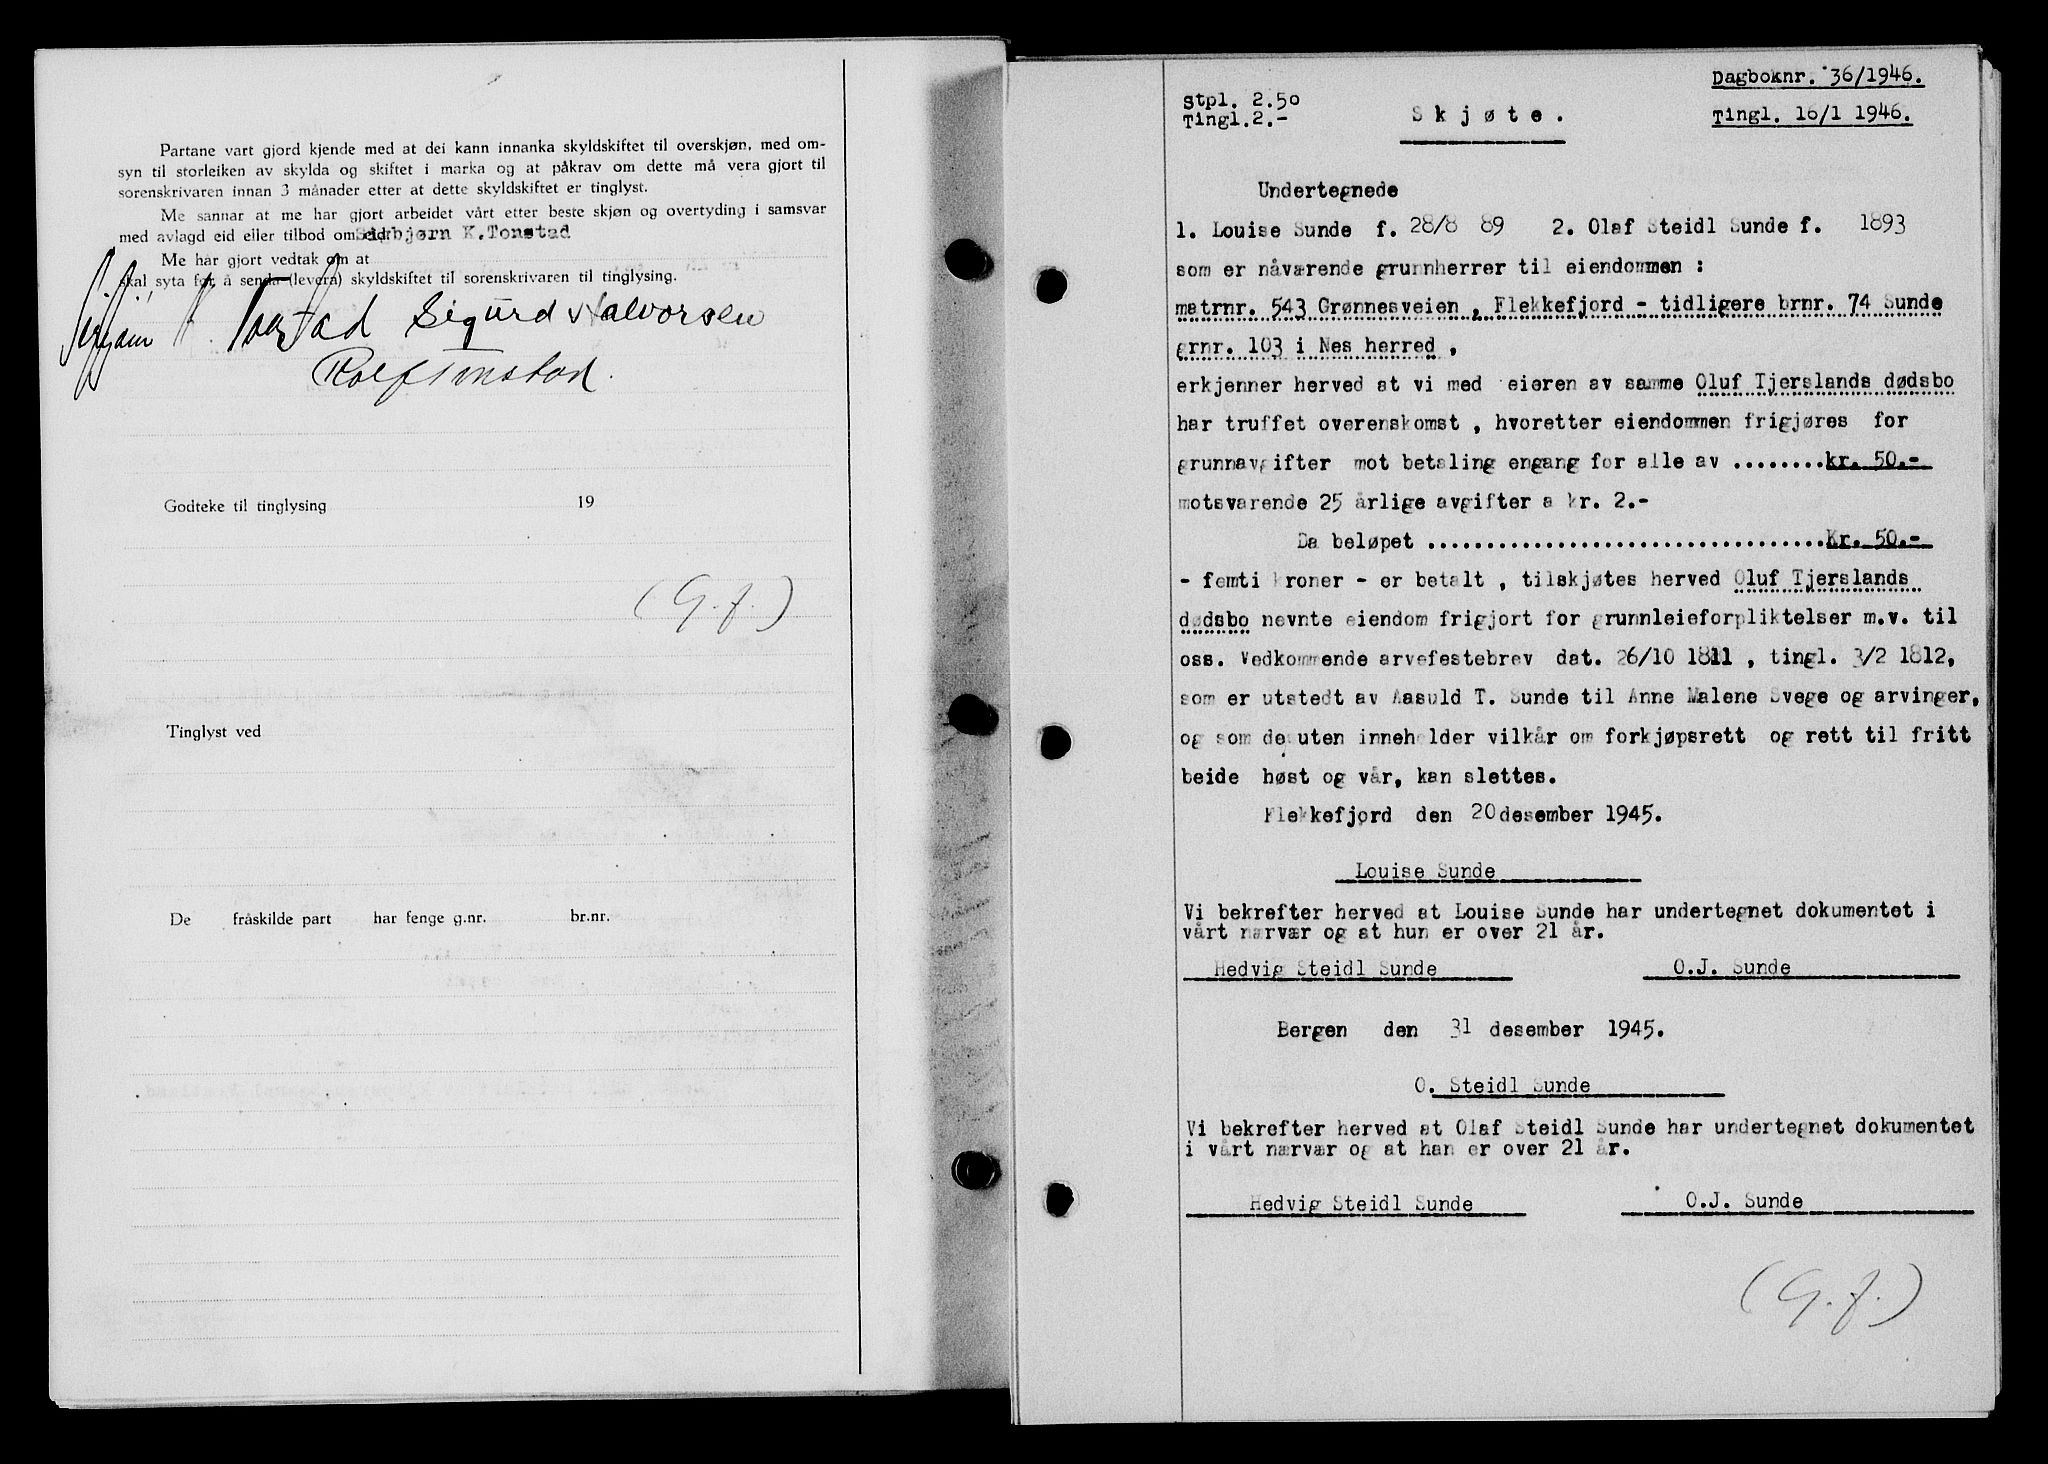 Partane vart gjord kjende med at dei kann innanka skyldskiftet til overskjøn, med om-
syn til storleiken av skylda og skiftet i marka og at påkrav om dette må vera gjort til
sorenskrivaren innan 3 månader etter at dette skyldskiftet er tinglyst.
Me sannar at me har gjort arbeidet vårt etter beste skjøn og overtyding i samsvar
med avlagd eid eller tilbod om eid.
Sigbjørn K.Tonstad
Me har gjort vedtak om at
skal syta for å senda (levera) skyldskiftet til sorenskrivaren til tinglysing.
Sigbjørn K. Tonstad Sigurd Halvorsen
Rolf Tonstad.
Godteke til tinglysing 19
(G.f.)
Tinglyst ved
De fråskilde part har fenge g.nr. br.nr.
Dagboknr. 36/1946.
Stpl. 2.50
Tingl.2.-
Skjøte.
Tingl. 16/1 1946.
Undertegnede
1. Louise Sunde f. 28/8 89 2. Olaf Steidl Sunde f. 1893
som er nåværende grunnherrer til eiendommen :
matrnr. 543 Grønnesveien , Flekkefjord - tidligere brnr. 74 Sunde
grnr. 103 i Nes herred ,
erkjenner herved at vi med eieren av samme Oluf Tjerslands dødsbo
har truffet overenskomst , hvoretter eiendommen frigjøres for
grunnavgifter mot betaling engang for alle av ........kr. 50.-
motsvarende 25 årlige avgifter a kr. 2.-
Da beløpet ..................................Kr. 50.-
- femti kroner - er betalt , tilskjøtes herved Oluf Tjerslands
dødsbo nevnte eiendom frigjort for grunnleieforpliktelser m.v. til
oss. Vedkommende arvefestebrev dat. 26/10 1811 , tingl. 3/2 1812,
som er utstedt av Aasuld T. Sunde til Anne Malene Svege og arvinger,
og som desuten inneholder vilkår om forkjøpsrett og rett til fritt
beide høst og vår, kan slettes.
Flekkefjord den 20 desember 1945.
Louise Sunde
Vi bekrefter herved at Louise Sunde har undertegnet dokumentet i
vårt nærvær og at hun er over 21 år.
Hedvig Steidl Sunde O.J. Sunde
Bergen den 31 desember 1945.
O. Steidl Sunde
Vi bekrefter herved at Olaf Steidl Sunde har undertegnet dokumentet
i vårt nærvær og at han er over 21 år.
Hedvig Steidl Sunde O.J. Sunde
(G.f.)